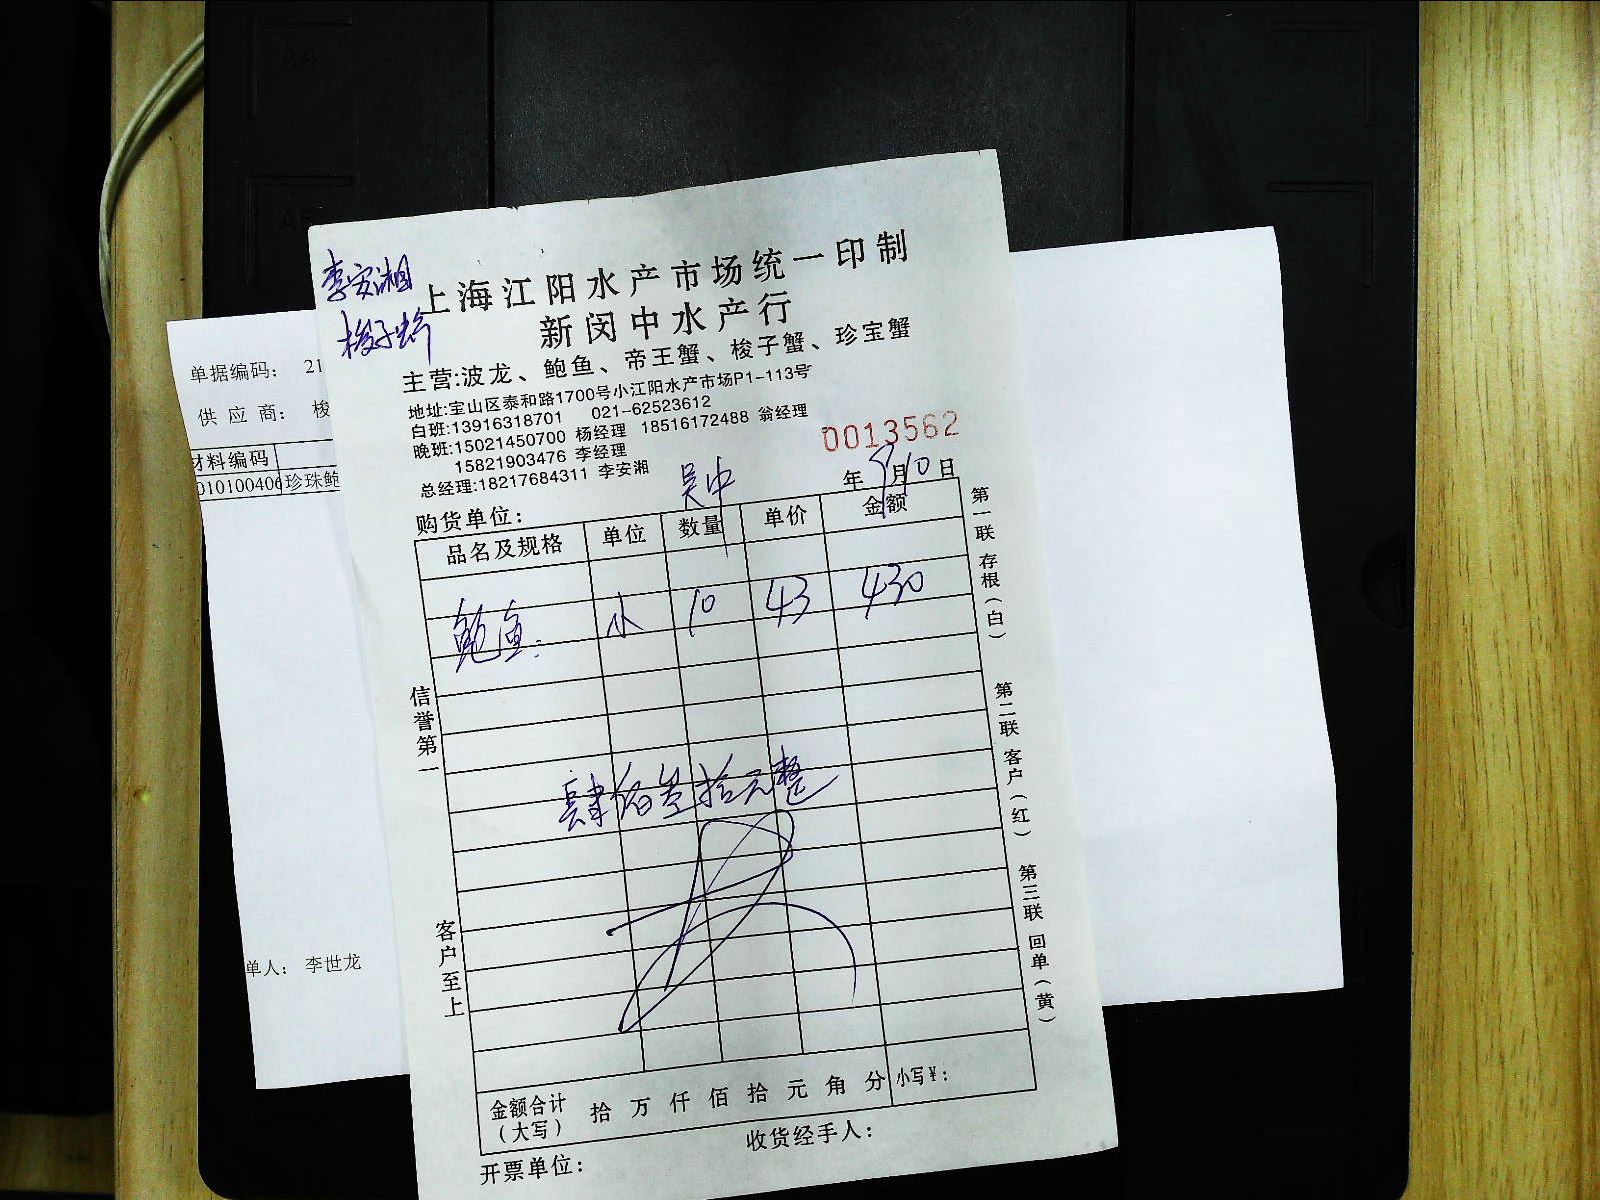 李安湘
梭子蟹
上海江阳水产市场统一印制
新闵中水产行
主营:波龙、鲍鱼、帝王蟹、梭子蟹、珍宝蟹
地址:宝山区泰和路1700号小江阳水产市场P1-113号
白班:13916318701 021-62523612
晚班:15021450700 杨经理 18516172488 翁经理
15821903476 李经理
总经理:18217684311 李安湘
0013562
吴中
年 9月10日
购货单位:
品名及规格 单位 数量 单价 金额
鲍鱼: 小 10 43 430
肆佰叁拾元整
金额合计(大写) 拾 万 仟 佰 拾 元 角 分 小写¥:
开票单位: 收货经手人:
信誉第一
客户至上
第一联 存根(白)
第二联 客户(红)
第三联 回单(黄)
单据编码: 21
供应商: 梭
材料编码
010100406 珍珠鲍
单人: 李世龙
A4
A5